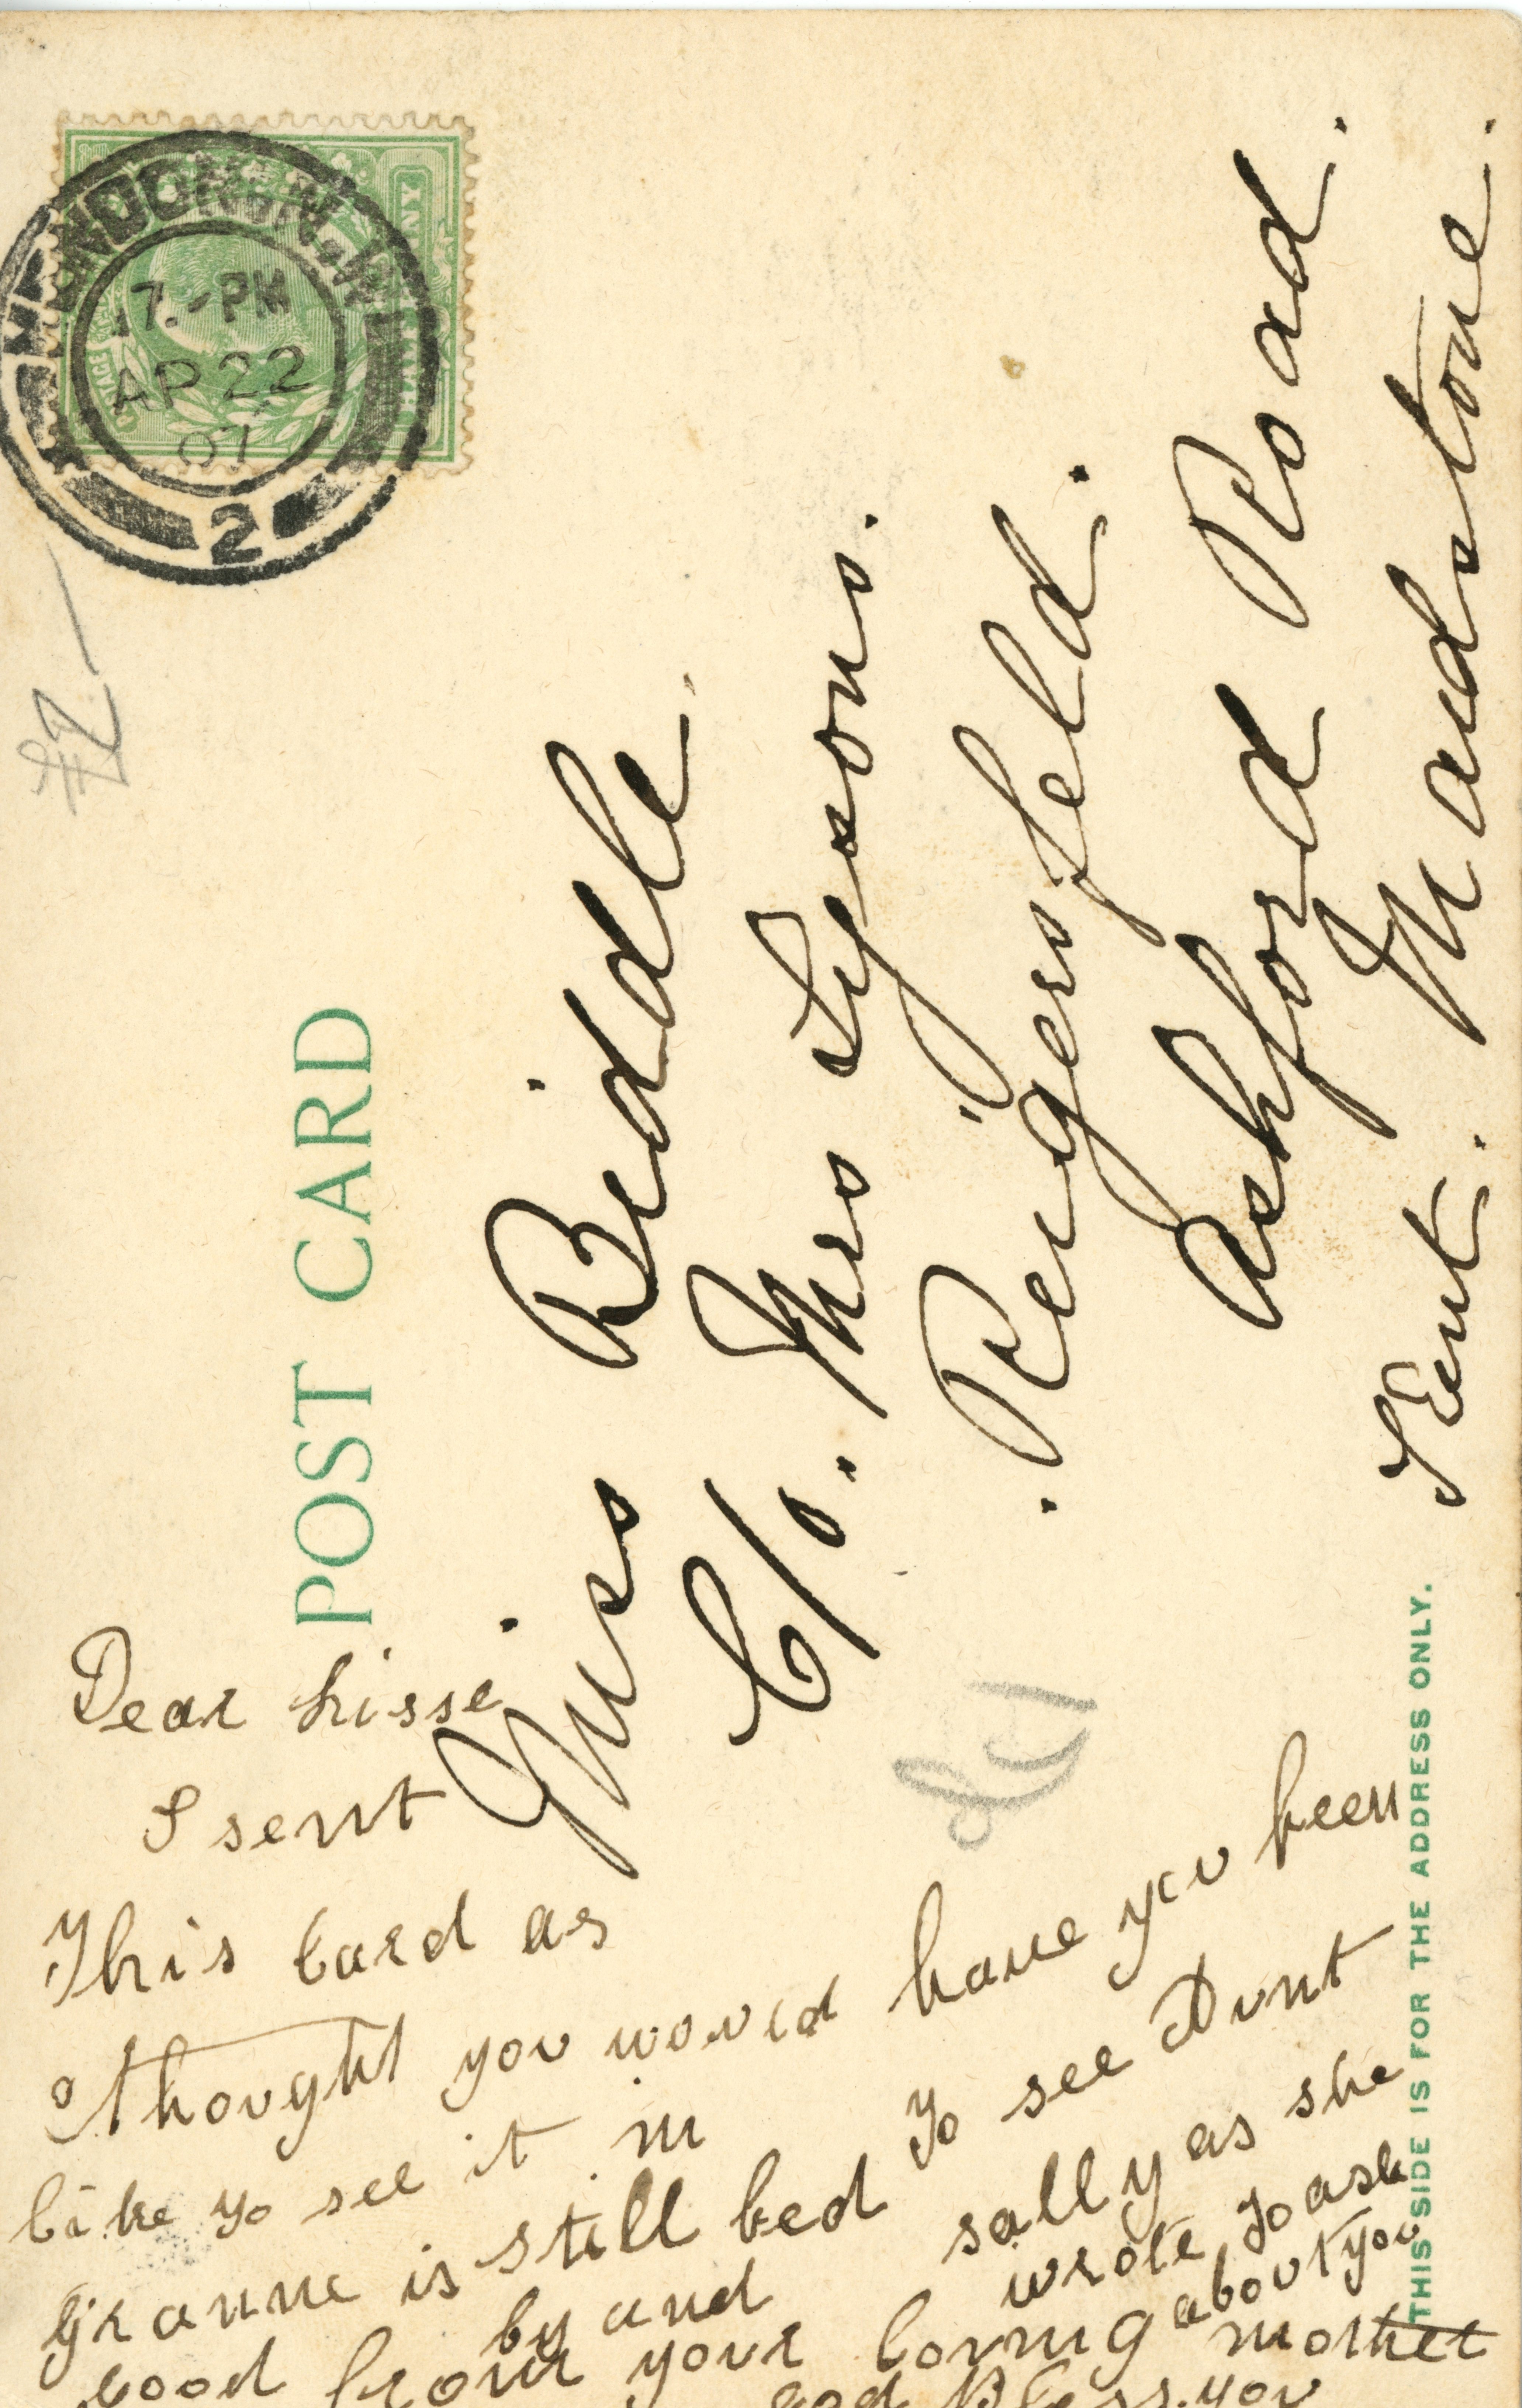 POST CARD
THIS SIDE IS FOR THE ADDRESS ONLY.
HALFPENNY
LONDON. N.W.
7.-PM
AP 22
07
2
£2-
Miss Biddle.
C/o. Mrs Lyons.
Reigersfeld.
Ashford Road.
Maidstone.
Kent.
Dear Lisse
I sent
This card as
I thought you would
like to see it
granne is still in bed
good by and
from your loving mother
god Bless you
have you been
To see Aunt
sally as she
wrote To ask
about you